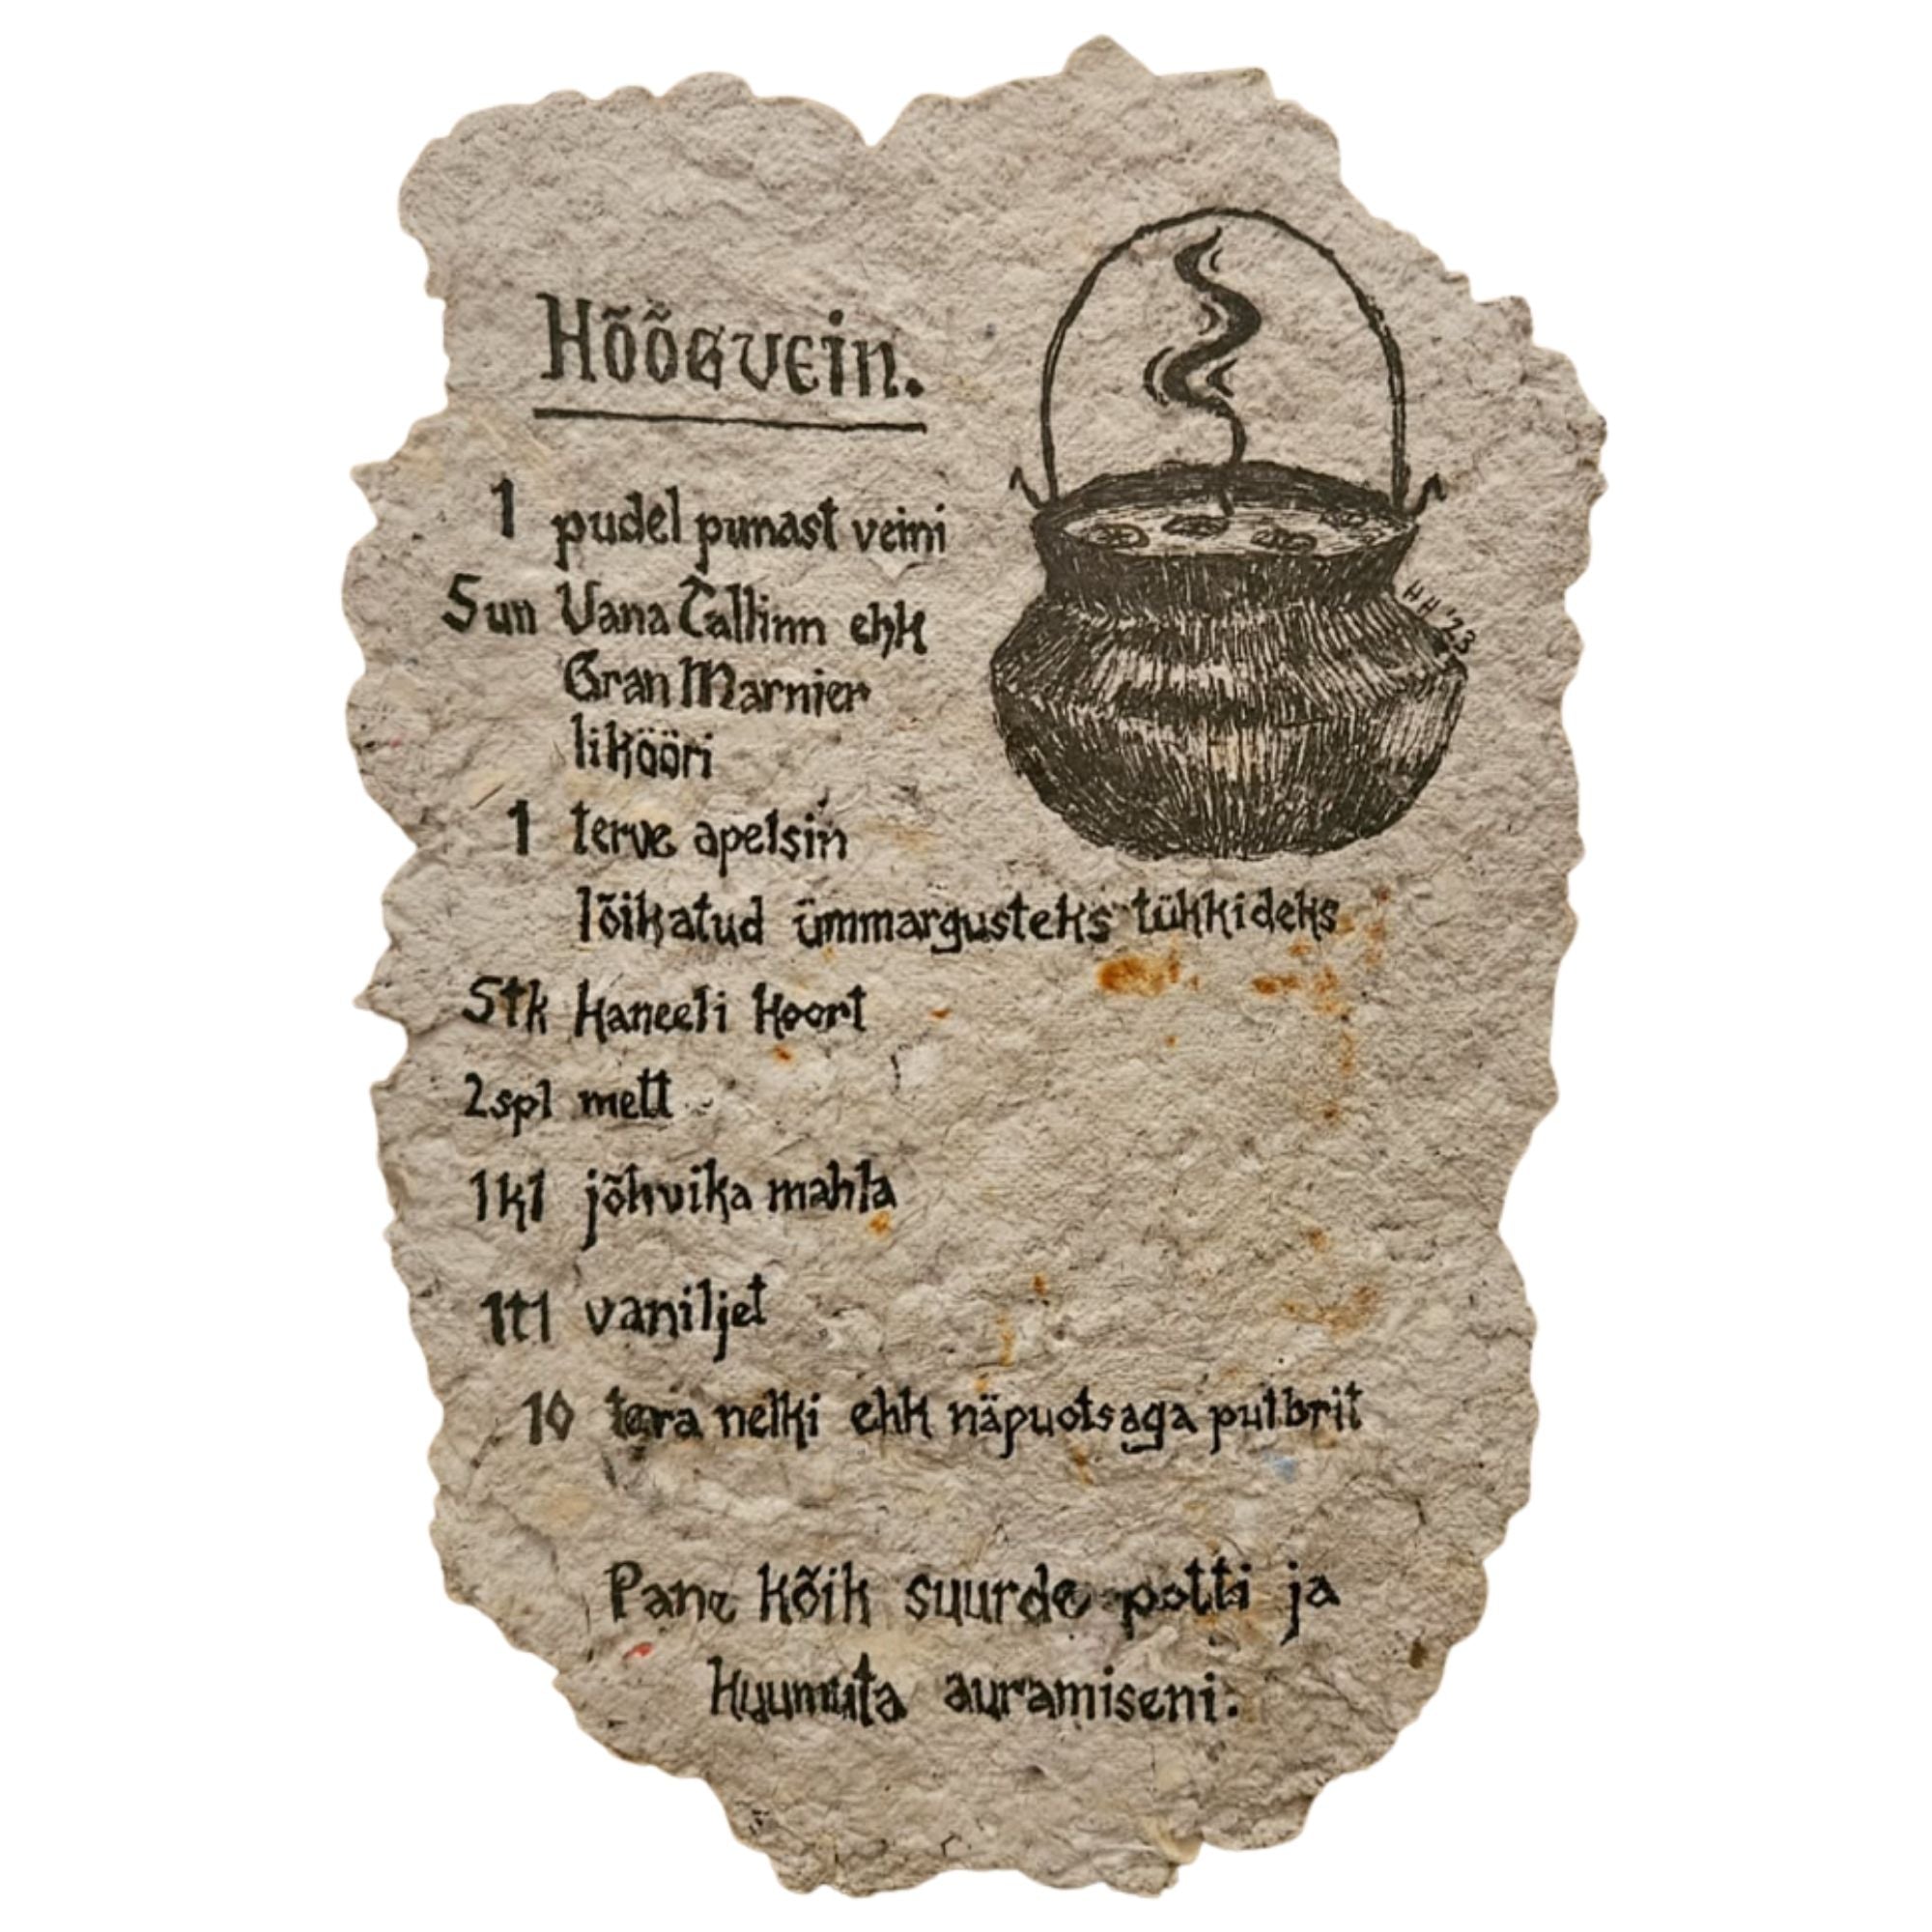 Hõõgvein.
1 pudel punast veini
5un Vana Tallinn ehk
Gran Marnier
likööri
1 terve apelsin
lõikatud ümmargusteks tükkideks
5tk kaneeli koort
2spl mett
1kl jõhvika mahla
1tl vaniljet
10 tera nelki ehk näpuotsaga pulbrit
Pane kõik suurde potti ja
kuumuta auramiseni.
HH '23